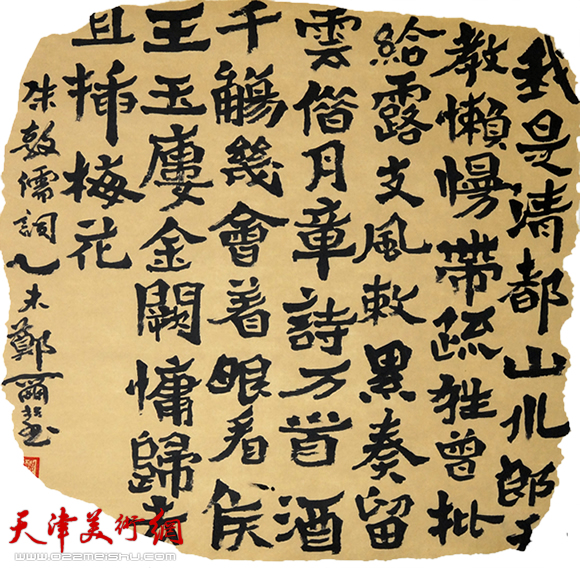 我是清都山水郎天
教懶慢帶疏狂曾批
給露支風敕累奏留
雲借月章詩万首酒
千觴幾會着眼看侯
王玉廔金闕慵歸去
且插梅花
朱敦儒詞 木鄭爾
天津美術網
www.022meishu.com